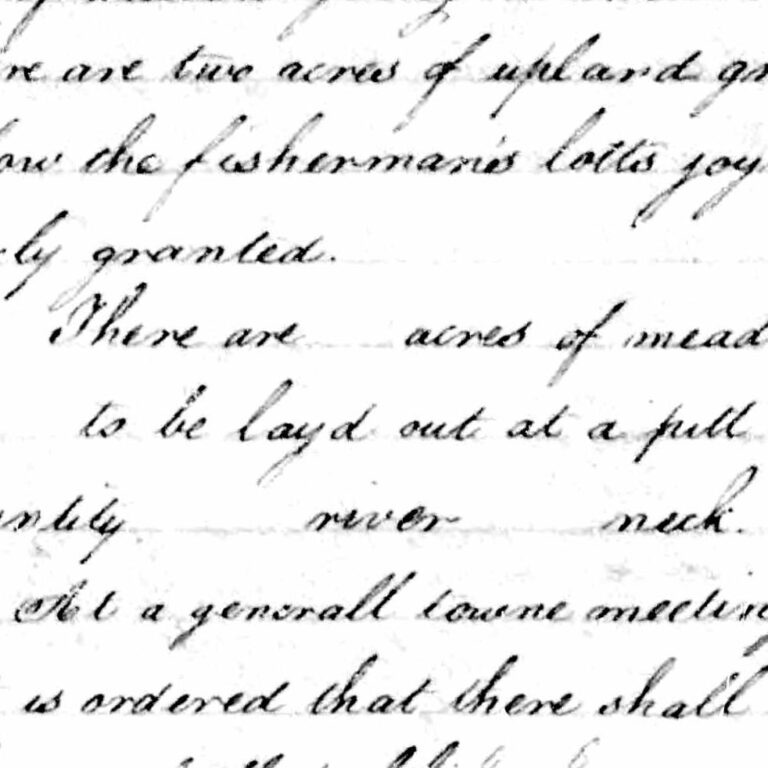 re are two acres of upland gr
low the fisherman's lotts joy
ly granted.
There are acres of mead
to be layd out at a pitt
ntity river neck.
At a generall towne meeting
is ordered that there shall